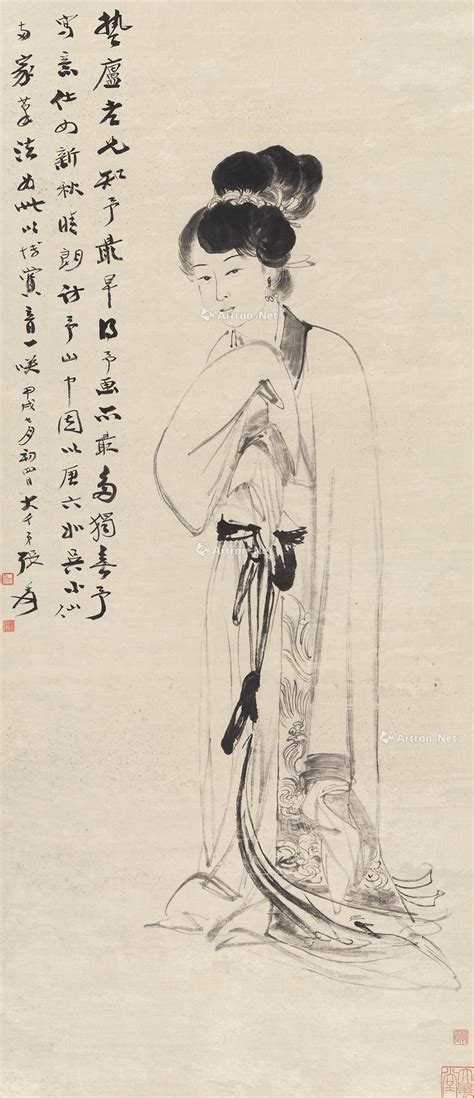 蟄廬老兄知予最早得予画亦最多獨喜予
寫意仕女新秋晴朗訪予山中因以唐六如吳小仙
兩家筆法为此以博賞音一咲 甲戌七月初四日大千弟張爰
大風堂
Artron.Net
Artron.Net
Artron.Net